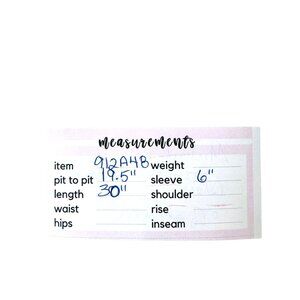 measurements
item 912A48 weight
pit to pit 19.5" sleeve 6"
length 30" shoulder
waist rise
hips inseam